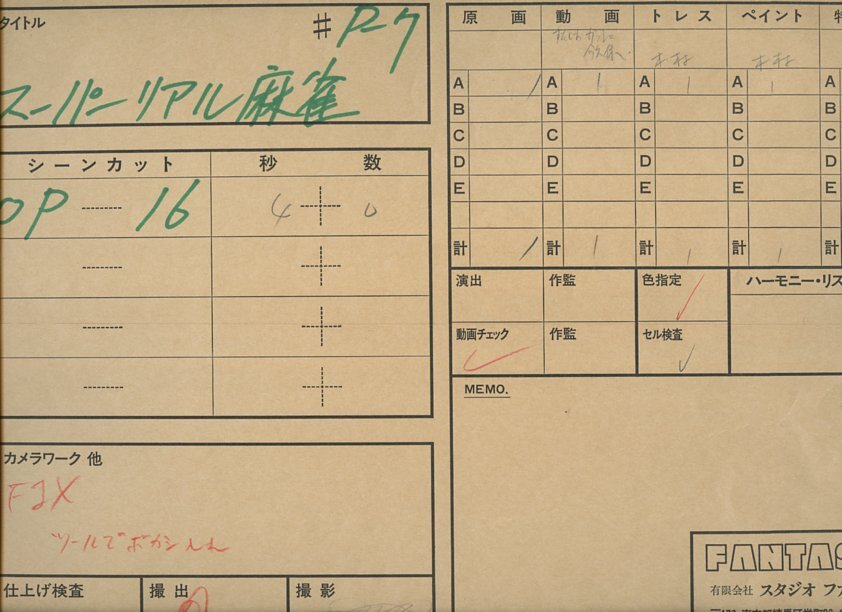 タイトル
# P-7
スーパーリアル麻雀
シーンカット 秒 数
OP 16 4 + 0
カメラワーク 他
FIX
ツールでボカシ入れ
仕上げ検査 撮出 撮影
原 画 動 画 トレス ペイント 特
木村 木村
A 1 A 1 A 1 A 1 A
B B B B B
C C C C C
D D D D D
E E E E E
計 1 計 1 計 1 計 1 計
演出 作監 色指定 ハーモニー・リス
動画チェック 作監 セル検査
MEMO.
FANTAS
有限会社 スタジオ ファ